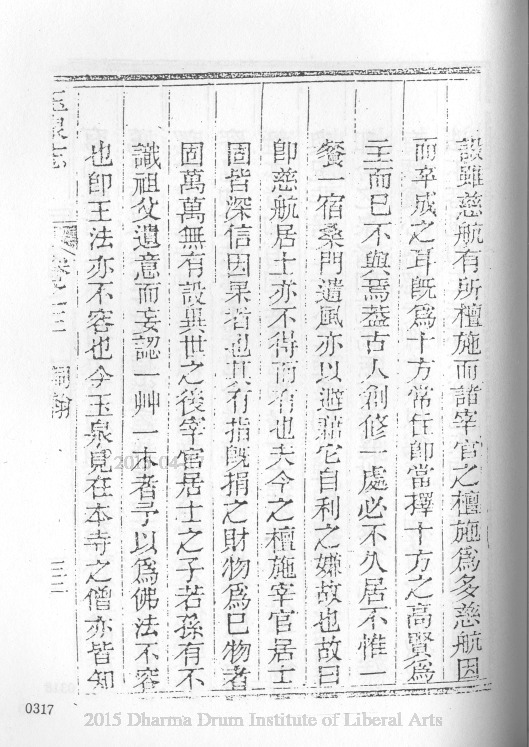 設雖慈航有所檀施而諸宰官之檀施為多慈航因
而卒成之耳既為十方常住即當擇十方之高賢為
主而已不與焉蓋古人創修一處必不久居不惟一
餐一宿桑門遺風亦以避 它自利之嫌故也故曰
即慈航居士亦不得而有也夫今之檀施宰官居士
固皆深信因果者也其有指既捐之財物為已物者
固萬萬無有設異世之後宰官居士之子若孫有不
識祖父遺意而妄認一艸一木者予以為佛法不容
也即王法亦不容也今玉泉見在本寺之僧亦皆知
玉泉志
卷之三
詞翰
三二
0317
2015 Dharma Drum Institute of Liberal Arts